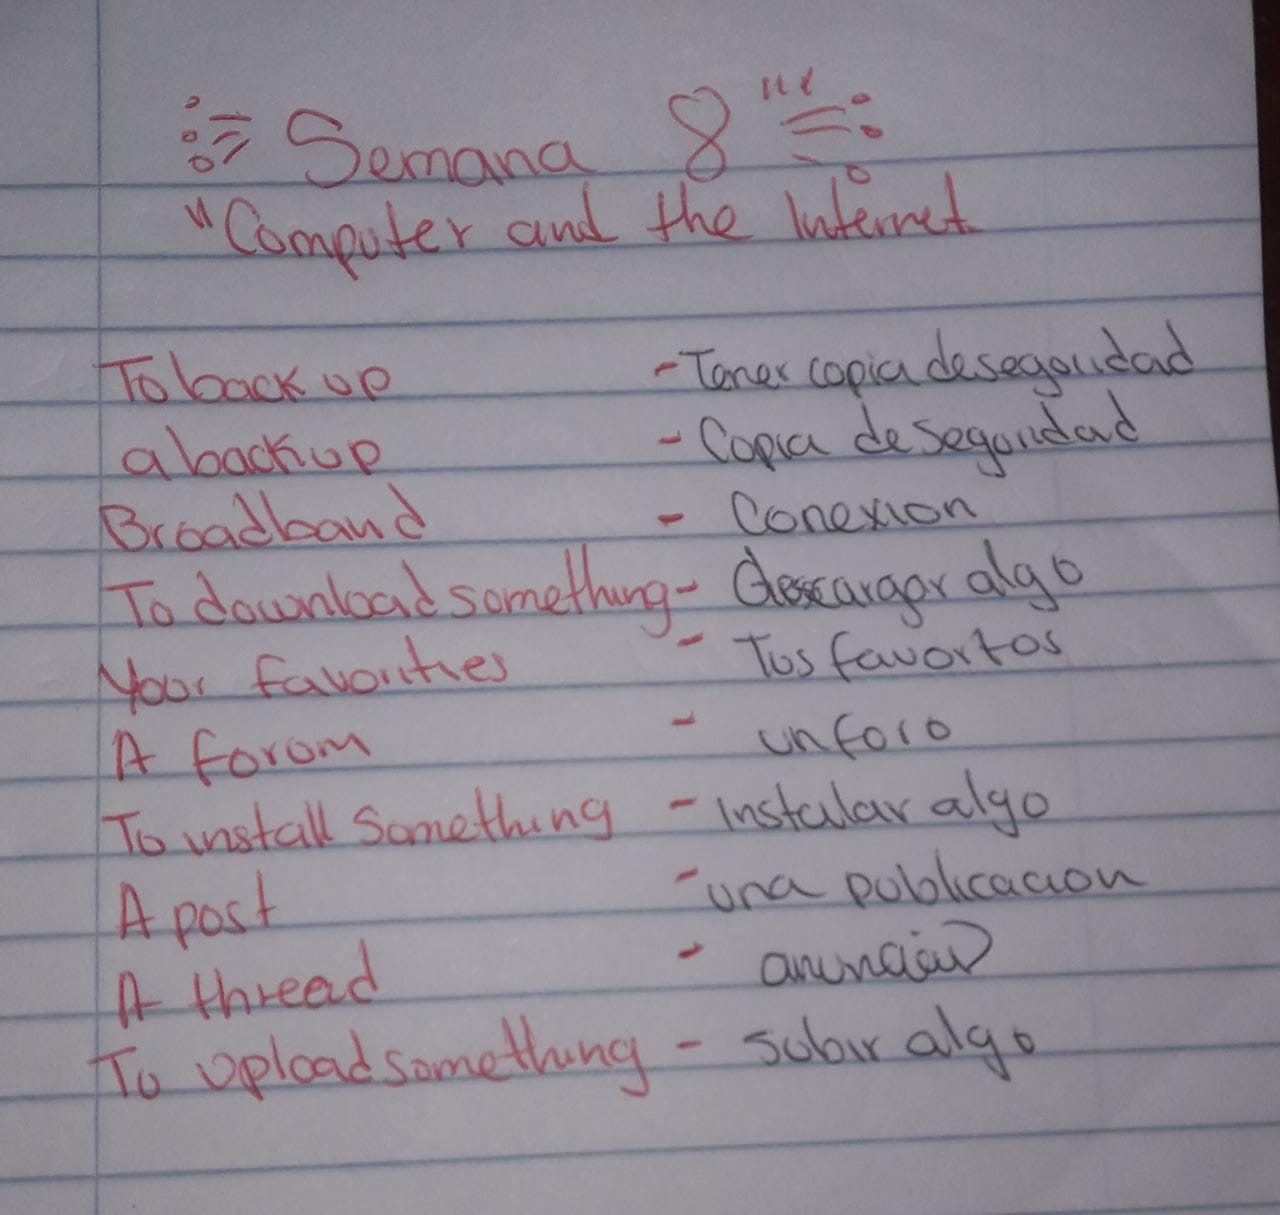 Semana 8
"Computer and the Internet
To back up - Tener copia de segouidad
a back up - Copia de segouidad
Broadband - Conexion
To download something - descargar algo
Your favorities - Tus favortos
A forom - un foro
To install something - Instalar algo
A post - una publicacion
A thread -
To upload something - subir algo